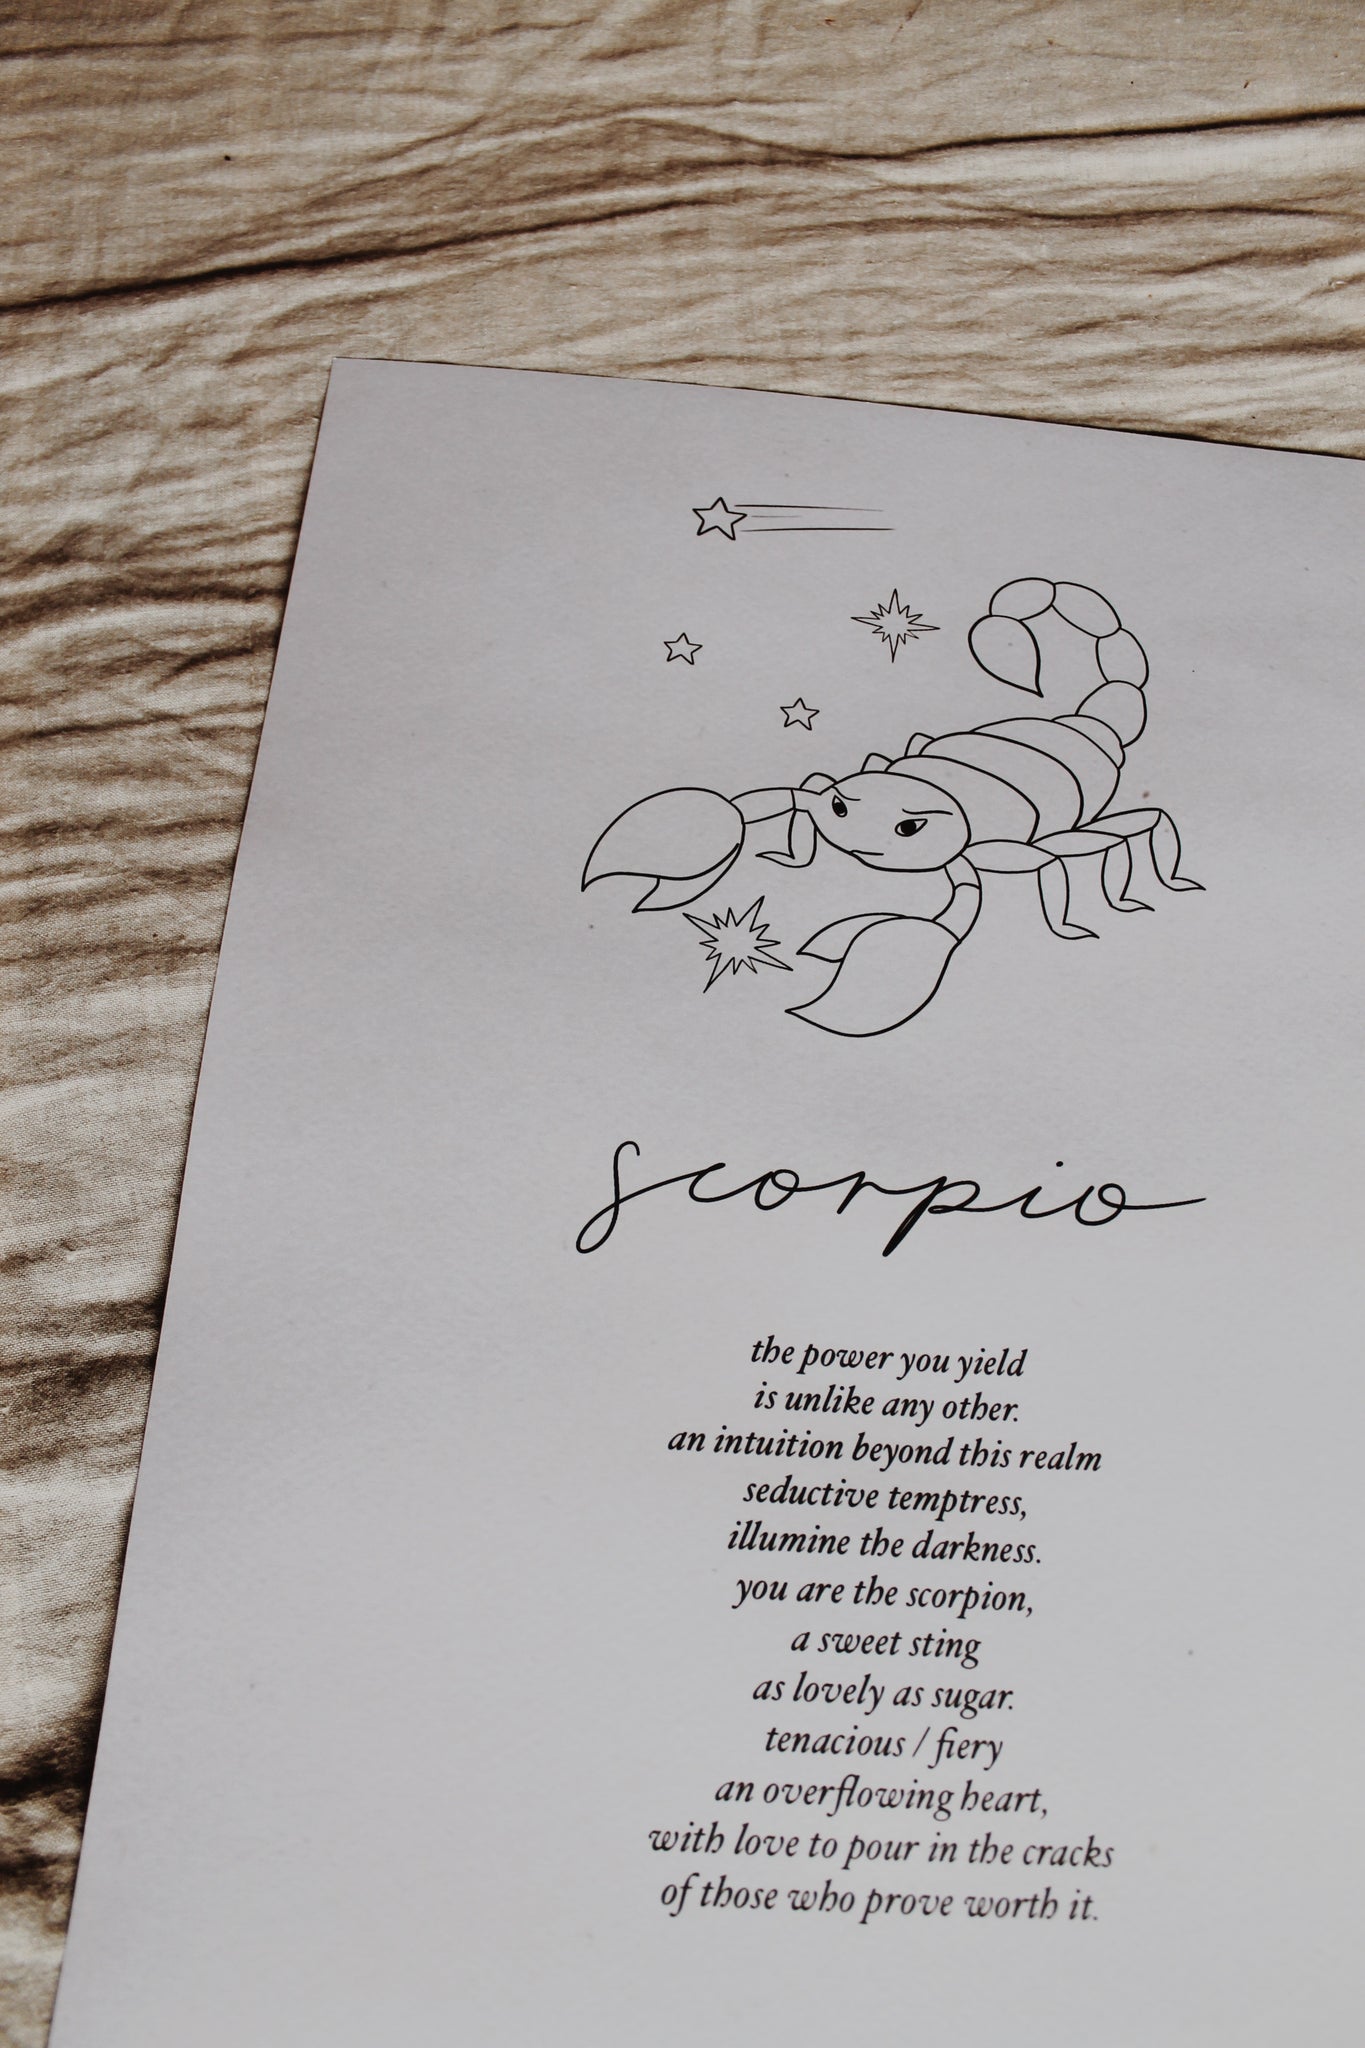 scorpio
the power you yield
is unlike any other.
an intuition beyond this realm
seductive temptress,
illumine the darkness.
you are the scorpion,
a sweet sting
as lovely as sugar.
tenacious / fiery
an overflowing heart,
with love to pour in the cracks
of those who prove worth it.